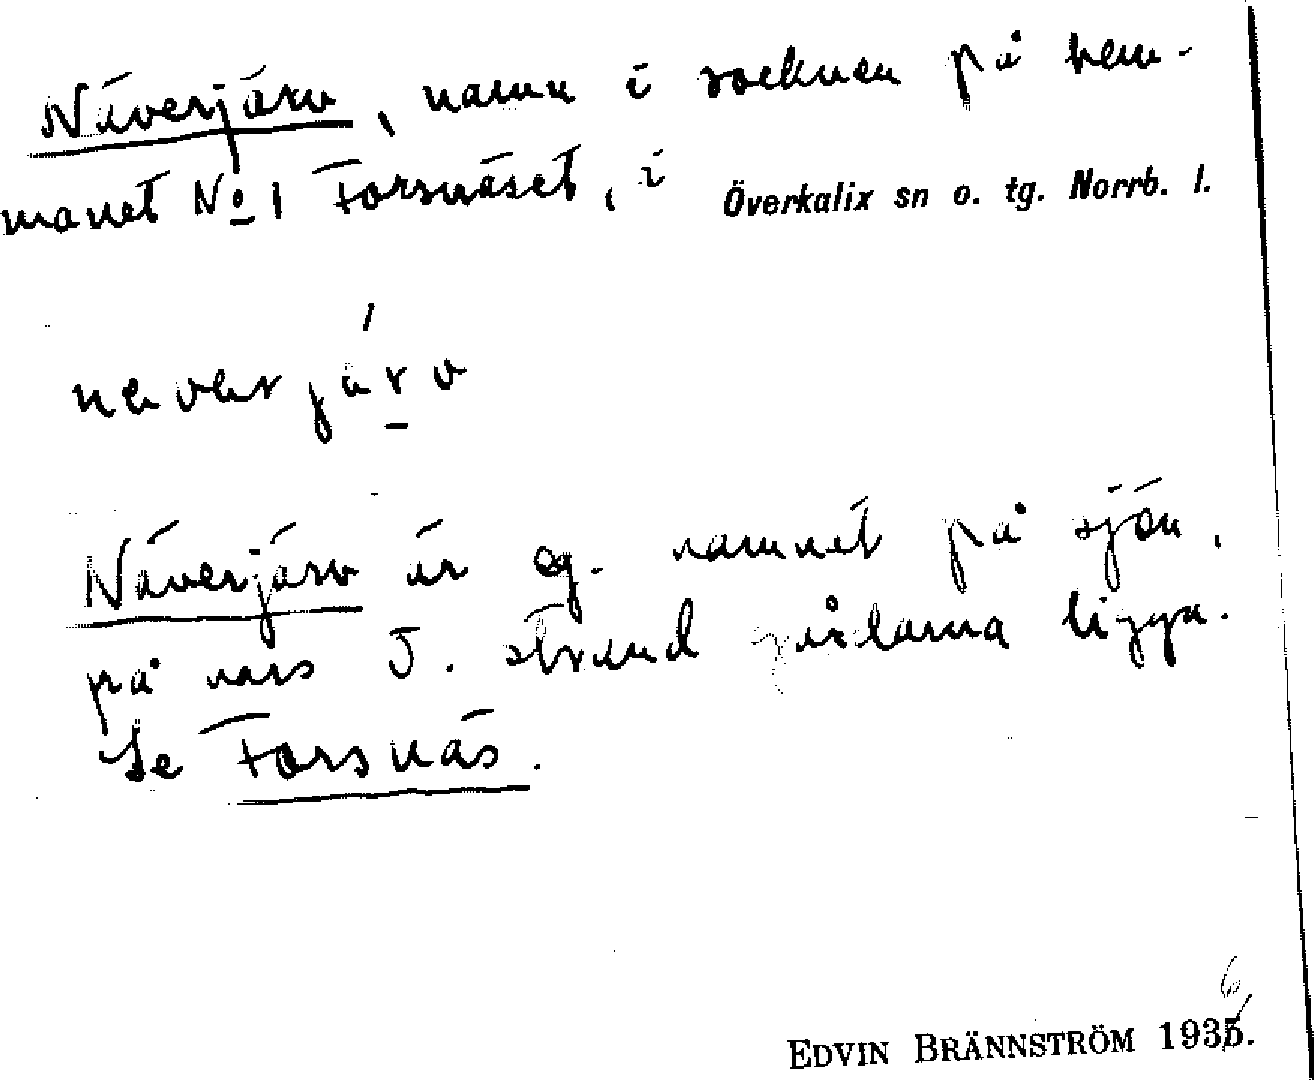 Näverjärv, namn i socknen på hem-
manet No 1 Forsnäset, i Överkalix sn o. tg. Norrb. l.
näverjärv
Näverjärv är eg. namnet på sjön,
på vars S. strand gårdarna ligga.
Se Forsnäs.
6
EDVIN BRÄNNSTRÖM 1935.